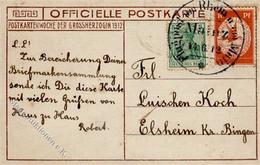 OFFICIELLE POSTKARTE
POSTKARTENWOCHE DER GROSSHERZOGIN 1912
L.L!
Zur Bereicherung Deiner
Briefmarkensammlung
sende ich Dir diese Karte
mit vielen Grüßen von
Haus zu Haus
Robert.
Frl.
Luischen Koch
Elsheim Kr. Bingen